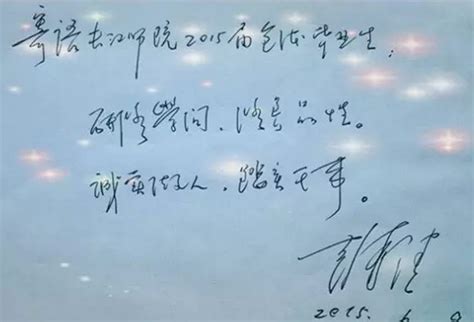 寄语长江师院2015届全体毕业生：
研修学问，修身品性。
诚实做人，踏实干事。
2015. 6. 9